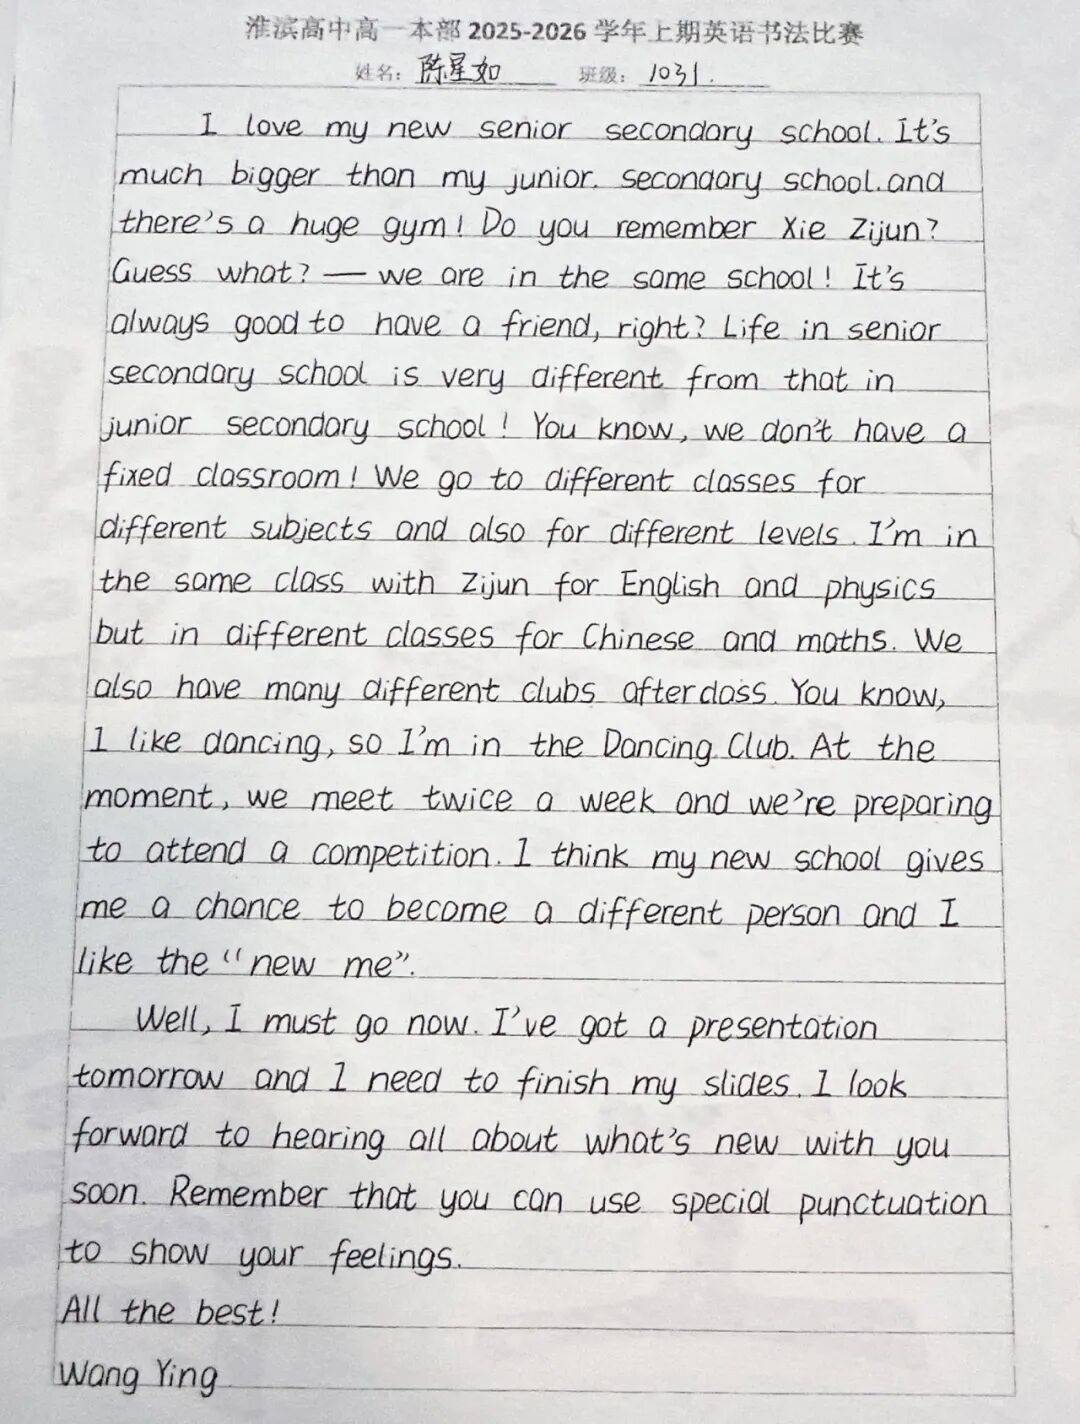 淮滨高中高一本部 2025-2026 学年上期英语书法比赛
姓名：陈星如 班级：1031.
I love my new senior secondary school. It's
much bigger than my junior. secondary school.and
there's a huge gym! Do you remember Xie Zijun?
Guess what? — we are in the same school! It's
always good to have a friend, right? Life in senior
secondary school is very different from that in
junior secondary school! You know, we don't have a
fixed classroom! We go to different classes for
different subjects and also for different levels. I'm in
the same class with Zijun for English and physics
but in different classes for Chinese and maths. We
also have many different clubs after class. You know,
I like dancing, so I'm in the Dancing Club. At the
moment, we meet twice a week and we're preparing
to attend a competition. I think my new school gives
me a chance to become a different person and I
like the "new me".
Well, I must go now. I've got a presentation
tomorrow and I need to finish my slides. I look
forward to hearing all about what's new with you
soon. Remember that you can use special punctuation
to show your feelings.
All the best!
Wang Ying